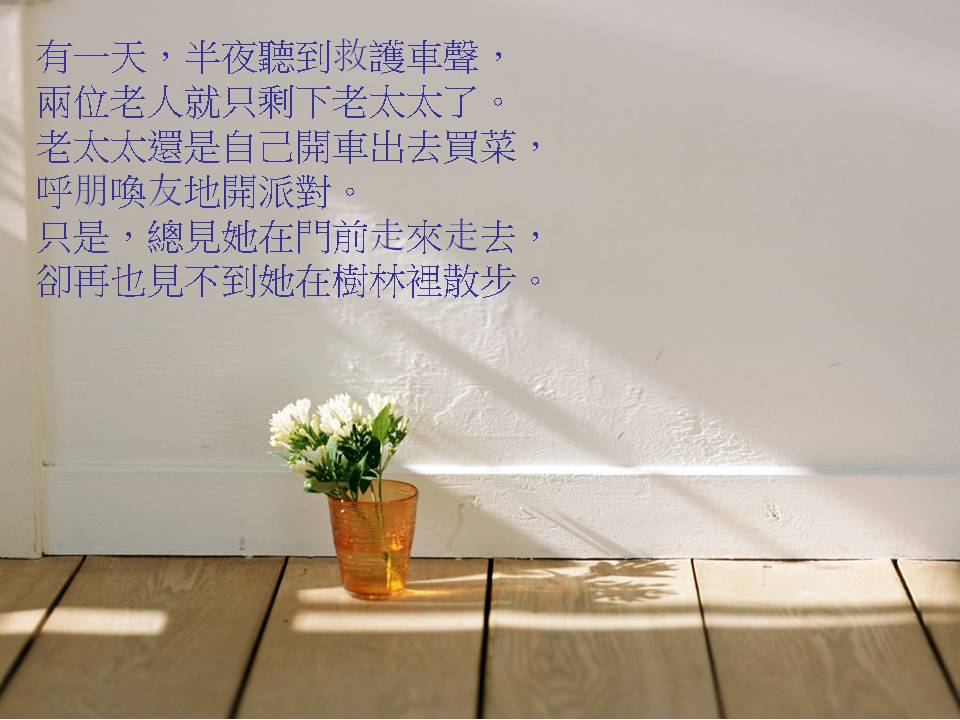 有一天，半夜聽到救護車聲，
兩位老人就只剩下老太太了。
老太太還是自己開車出去買菜，
呼朋喚友地開派對。
只是，總見她在門前走來走去，
卻再也見不到她在樹林裡散步。